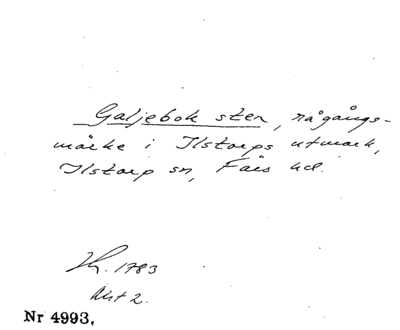 Galjebok sten, rågångs-
märke i Ilstorps utmark,
Ilstorp sn, Färs hd.
1783
Akt 2.
Nr 4993.